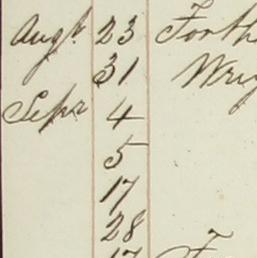 Augst 23 Forth
31 Wrig
Sepr 4
5
17
28
17